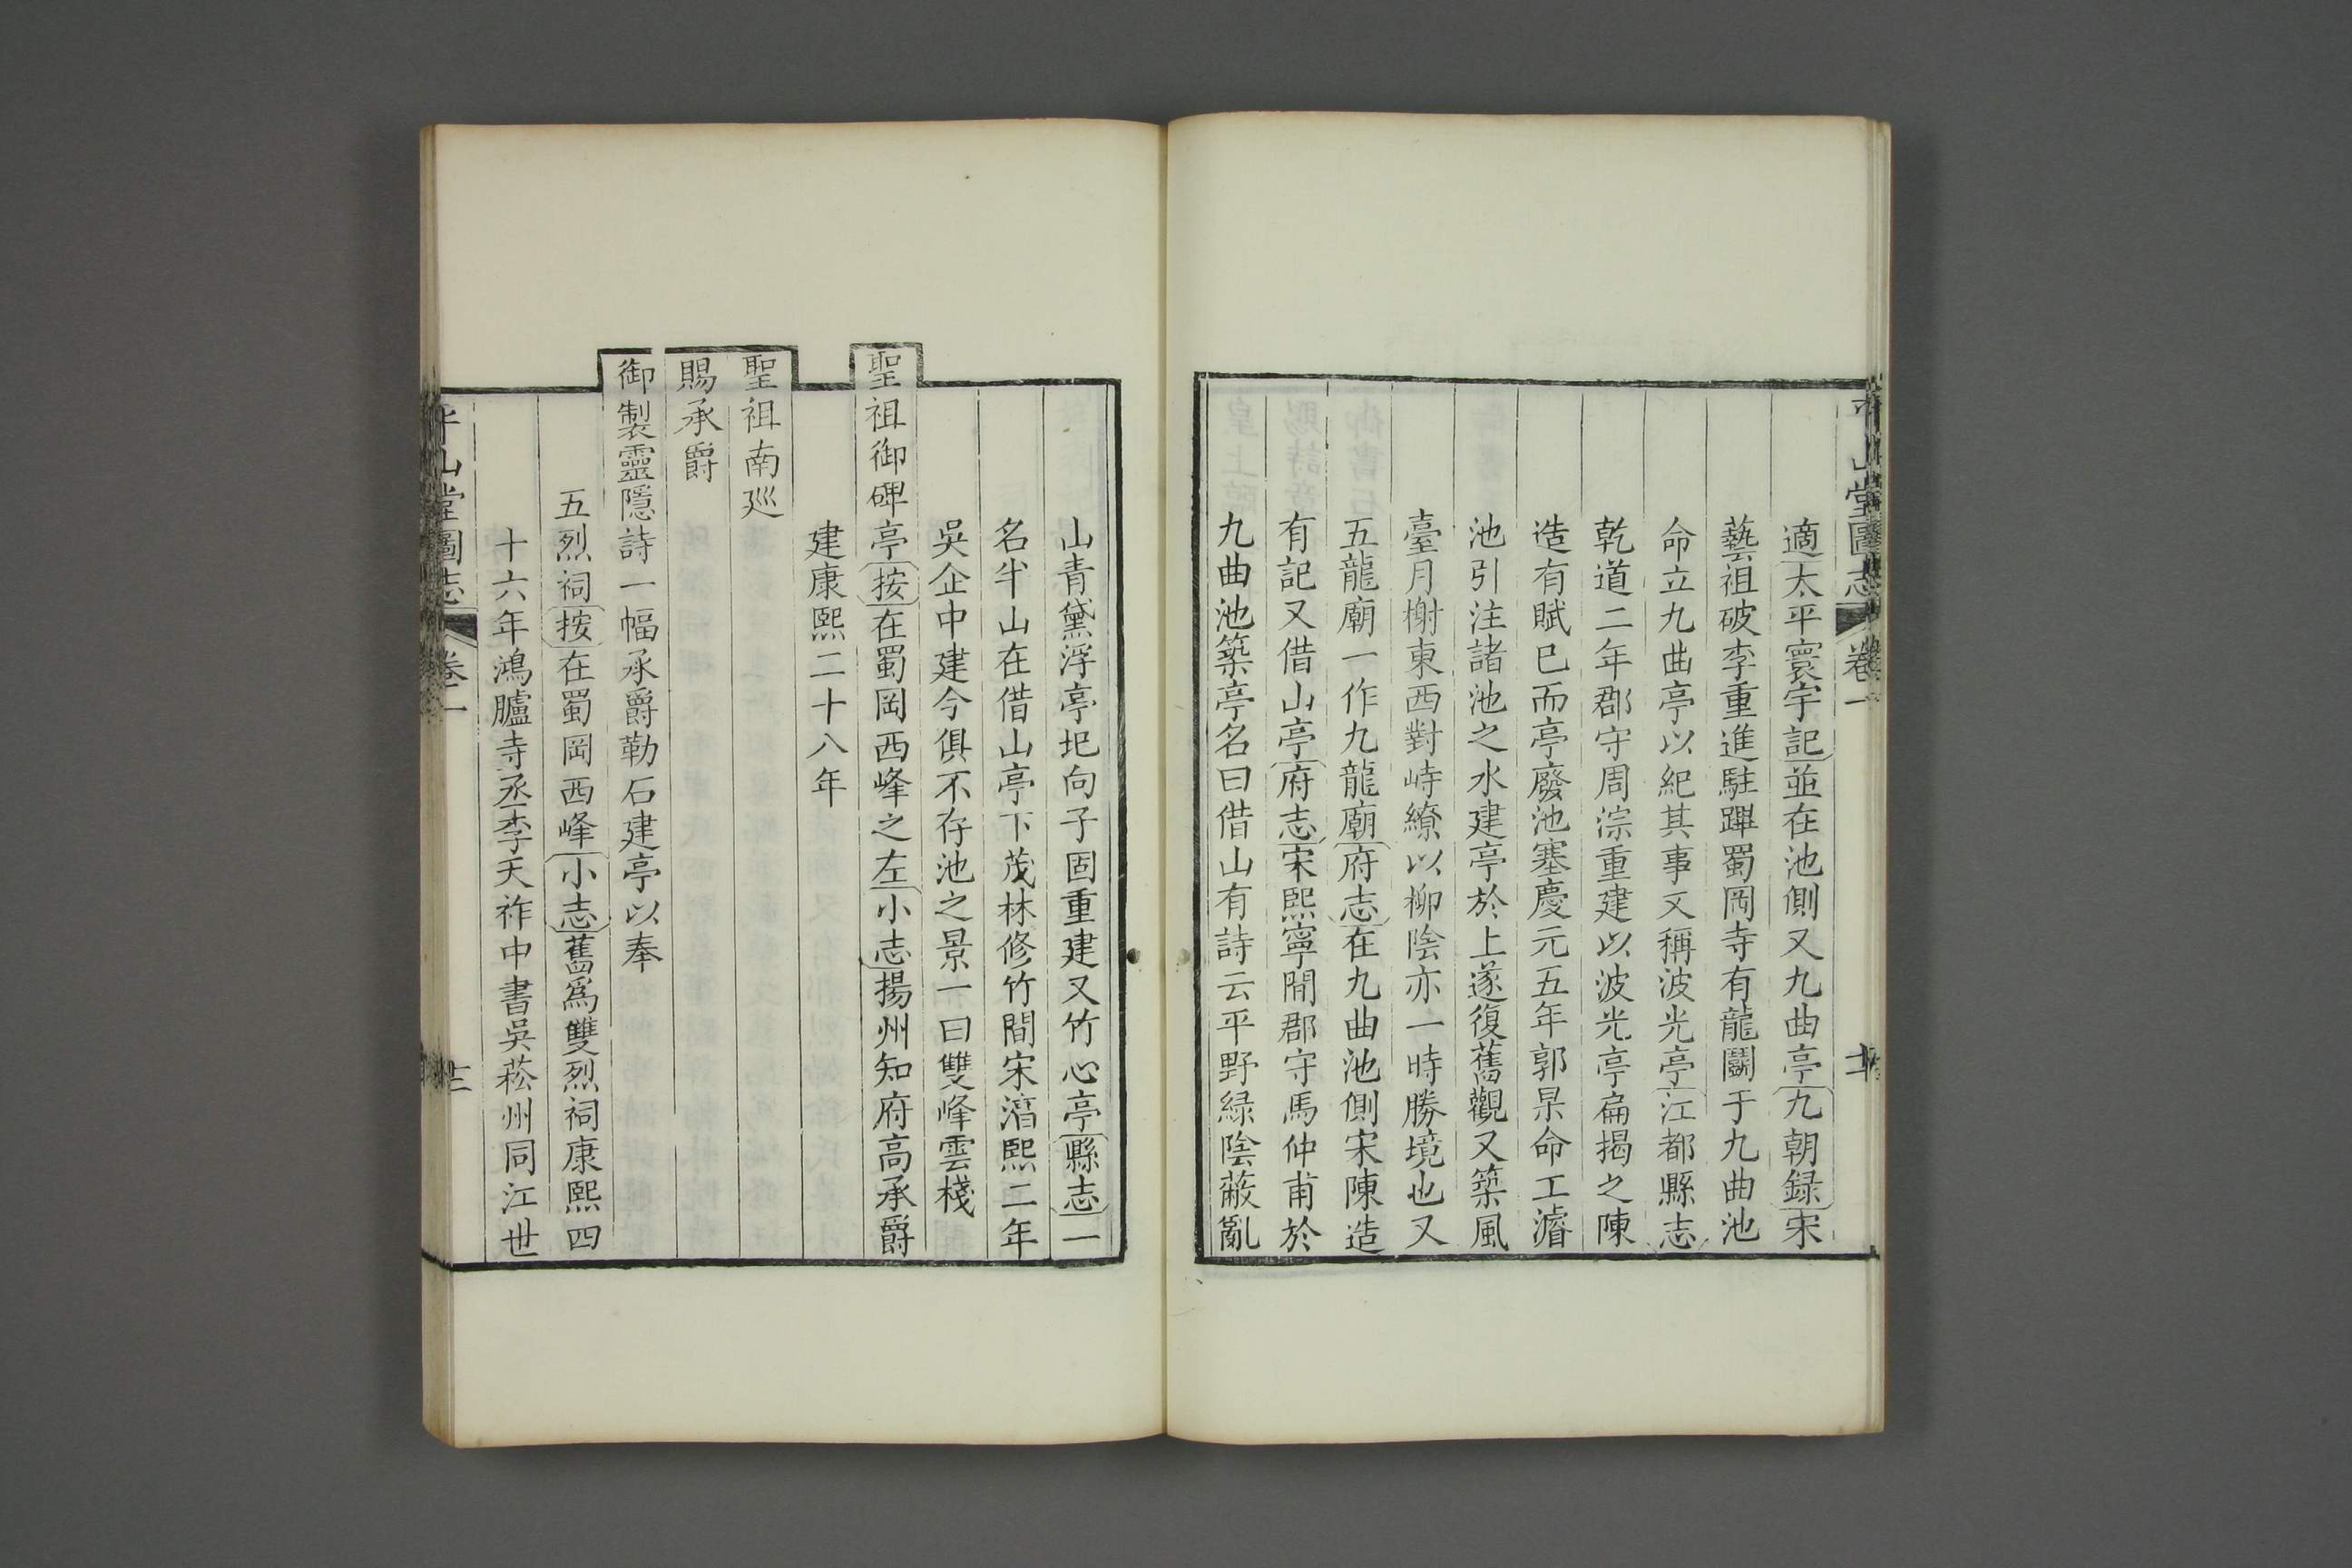 平山堂圖志 卷一
適太平寰宇記並在池側又九曲亭九朝録宋
藝祖破李重進駐蹕蜀岡寺有龍鬭于九曲池
命立九曲亭以紀其事又稱波光亭江都縣志
乾道二年郡守周淙重建以波光亭扁揭之陳
造有賦已而亭廢池塞慶元五年郭杲命工濬
池引注諸池之水建亭於上遂復舊觀又築風
臺月榭東西對峙繚以柳陰亦一時勝境也又
五龍廟一作九龍廟府志在九曲池側宋陳造
有記又借山亭府志宋熙寧間郡守馬仲甫於
九曲池築亭名曰借山有詩云平野緑陰蔽亂
山青黛浮亭圯向子固重建又竹心亭縣志一
名半山在借山亭下茂林修竹間宋淳熙二年
吳企中建今俱不存池之景一曰雙峰雲棧
聖祖御碑亭按在蜀岡西峰之左小志揚州知府高承爵
建康熙二十八年
聖祖南廵
賜承爵
御製靈隱詩一幅承爵勒石建亭以奉
五烈祠按在蜀岡西峰小志舊爲雙烈祠康熙四
十六年鴻臚寺丞李天祚中書吳菘州同江世
平山堂圖志 卷一